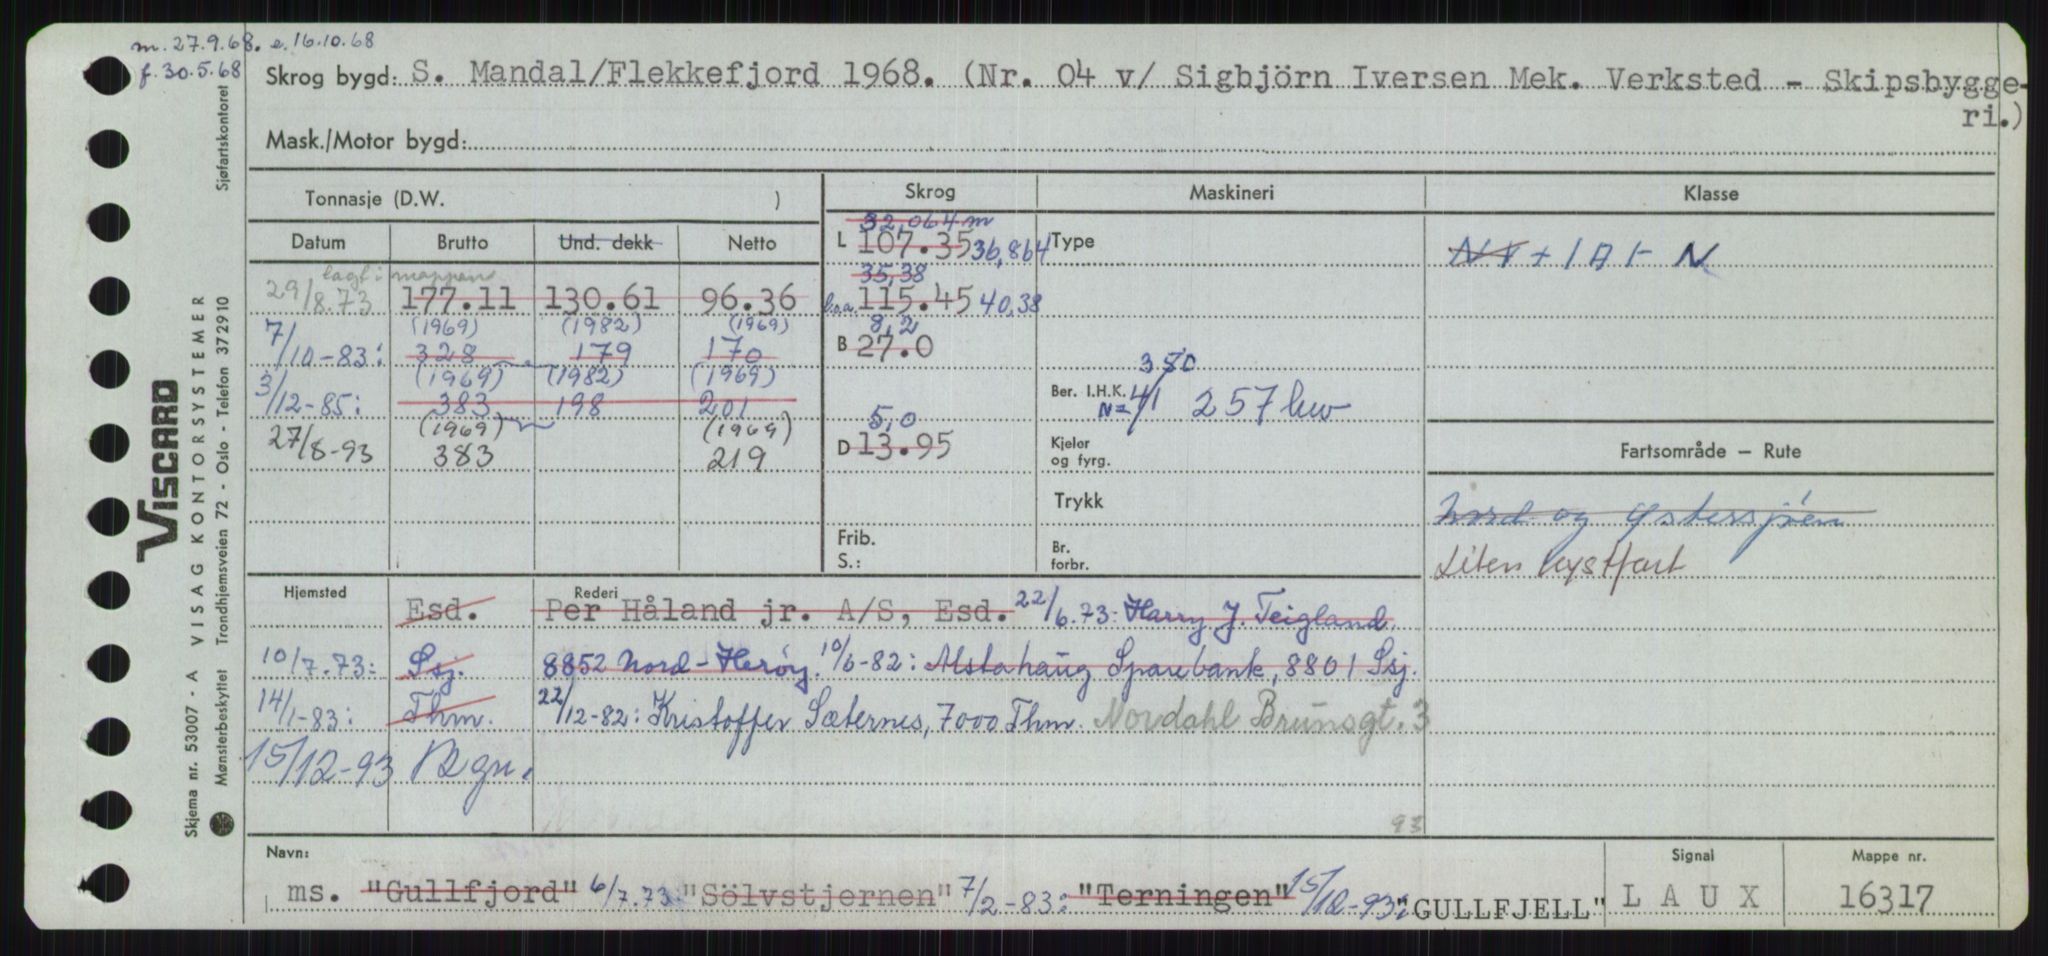 m. 27.9.68. e. 16.10.68
f. 30.5.68
Skrog bygd: S. Mandal/Flekkefjord 1968. (Nr. 04 v/ Sigbjörn Iversen Mek. Verksted - Skipsbygge-
ri.)
Mask./Motor bygd:
Tonnasje (D.W. )
Skrog
Maskineri
Klasse
Datum Brutto Und. dekk Netto
32,064 m
L 107.35 36,864
Type
+ 1A1- N
lagt i mappen
35,38
29/8.73 177.11 130.61 96.36
l.o.a. 115.45 40,38
(1969) (1982) (1969)
8,2
7/10-83: 328 179 170
B 27.0
(1969) (1982) (1969)
350
3/12-85: 383 198 201
Ber. I.H.K. 41 257 kw
N=
(1969) (1969)
5,0
27/8-93 383 219
D 13.95
Kjeler
og fyrg.
Fartsområde – Rute
Trykk
Nord og Østersjøen
Frib.
S.:
Br.
forbr.
Liten kystfart
Hjemsted
Rederi
Esd. Per Håland jr. A/S, Esd. 22/6.73: Harry J. Teigland,
10/7.73: Ssj. 8852 Nord-Herøy. 10/6-82: Alstahaug Sparebank, 8801 Ssj.
14/1-83: Thm. 22/12-82: Kristoffer Sæternes, 7000 Thm. Nordahl Brunsgt. 3
15/12-93 Bgn.
93
Navn:
Signal
Mappe nr.
ms. "Gullfjord" 6/7.73: "Sölvstjernen" 7/2-83: "Terningen" 15/12-93: "GULLFJELL"
L A U X
16317
VISCARD
Skjema nr. 53007 - A VISAG KONTORSYSTEMER
Mønsterbeskyttet Trondhjemsveien 72 - Oslo - Telefon 372910
Sjøfartskontoret